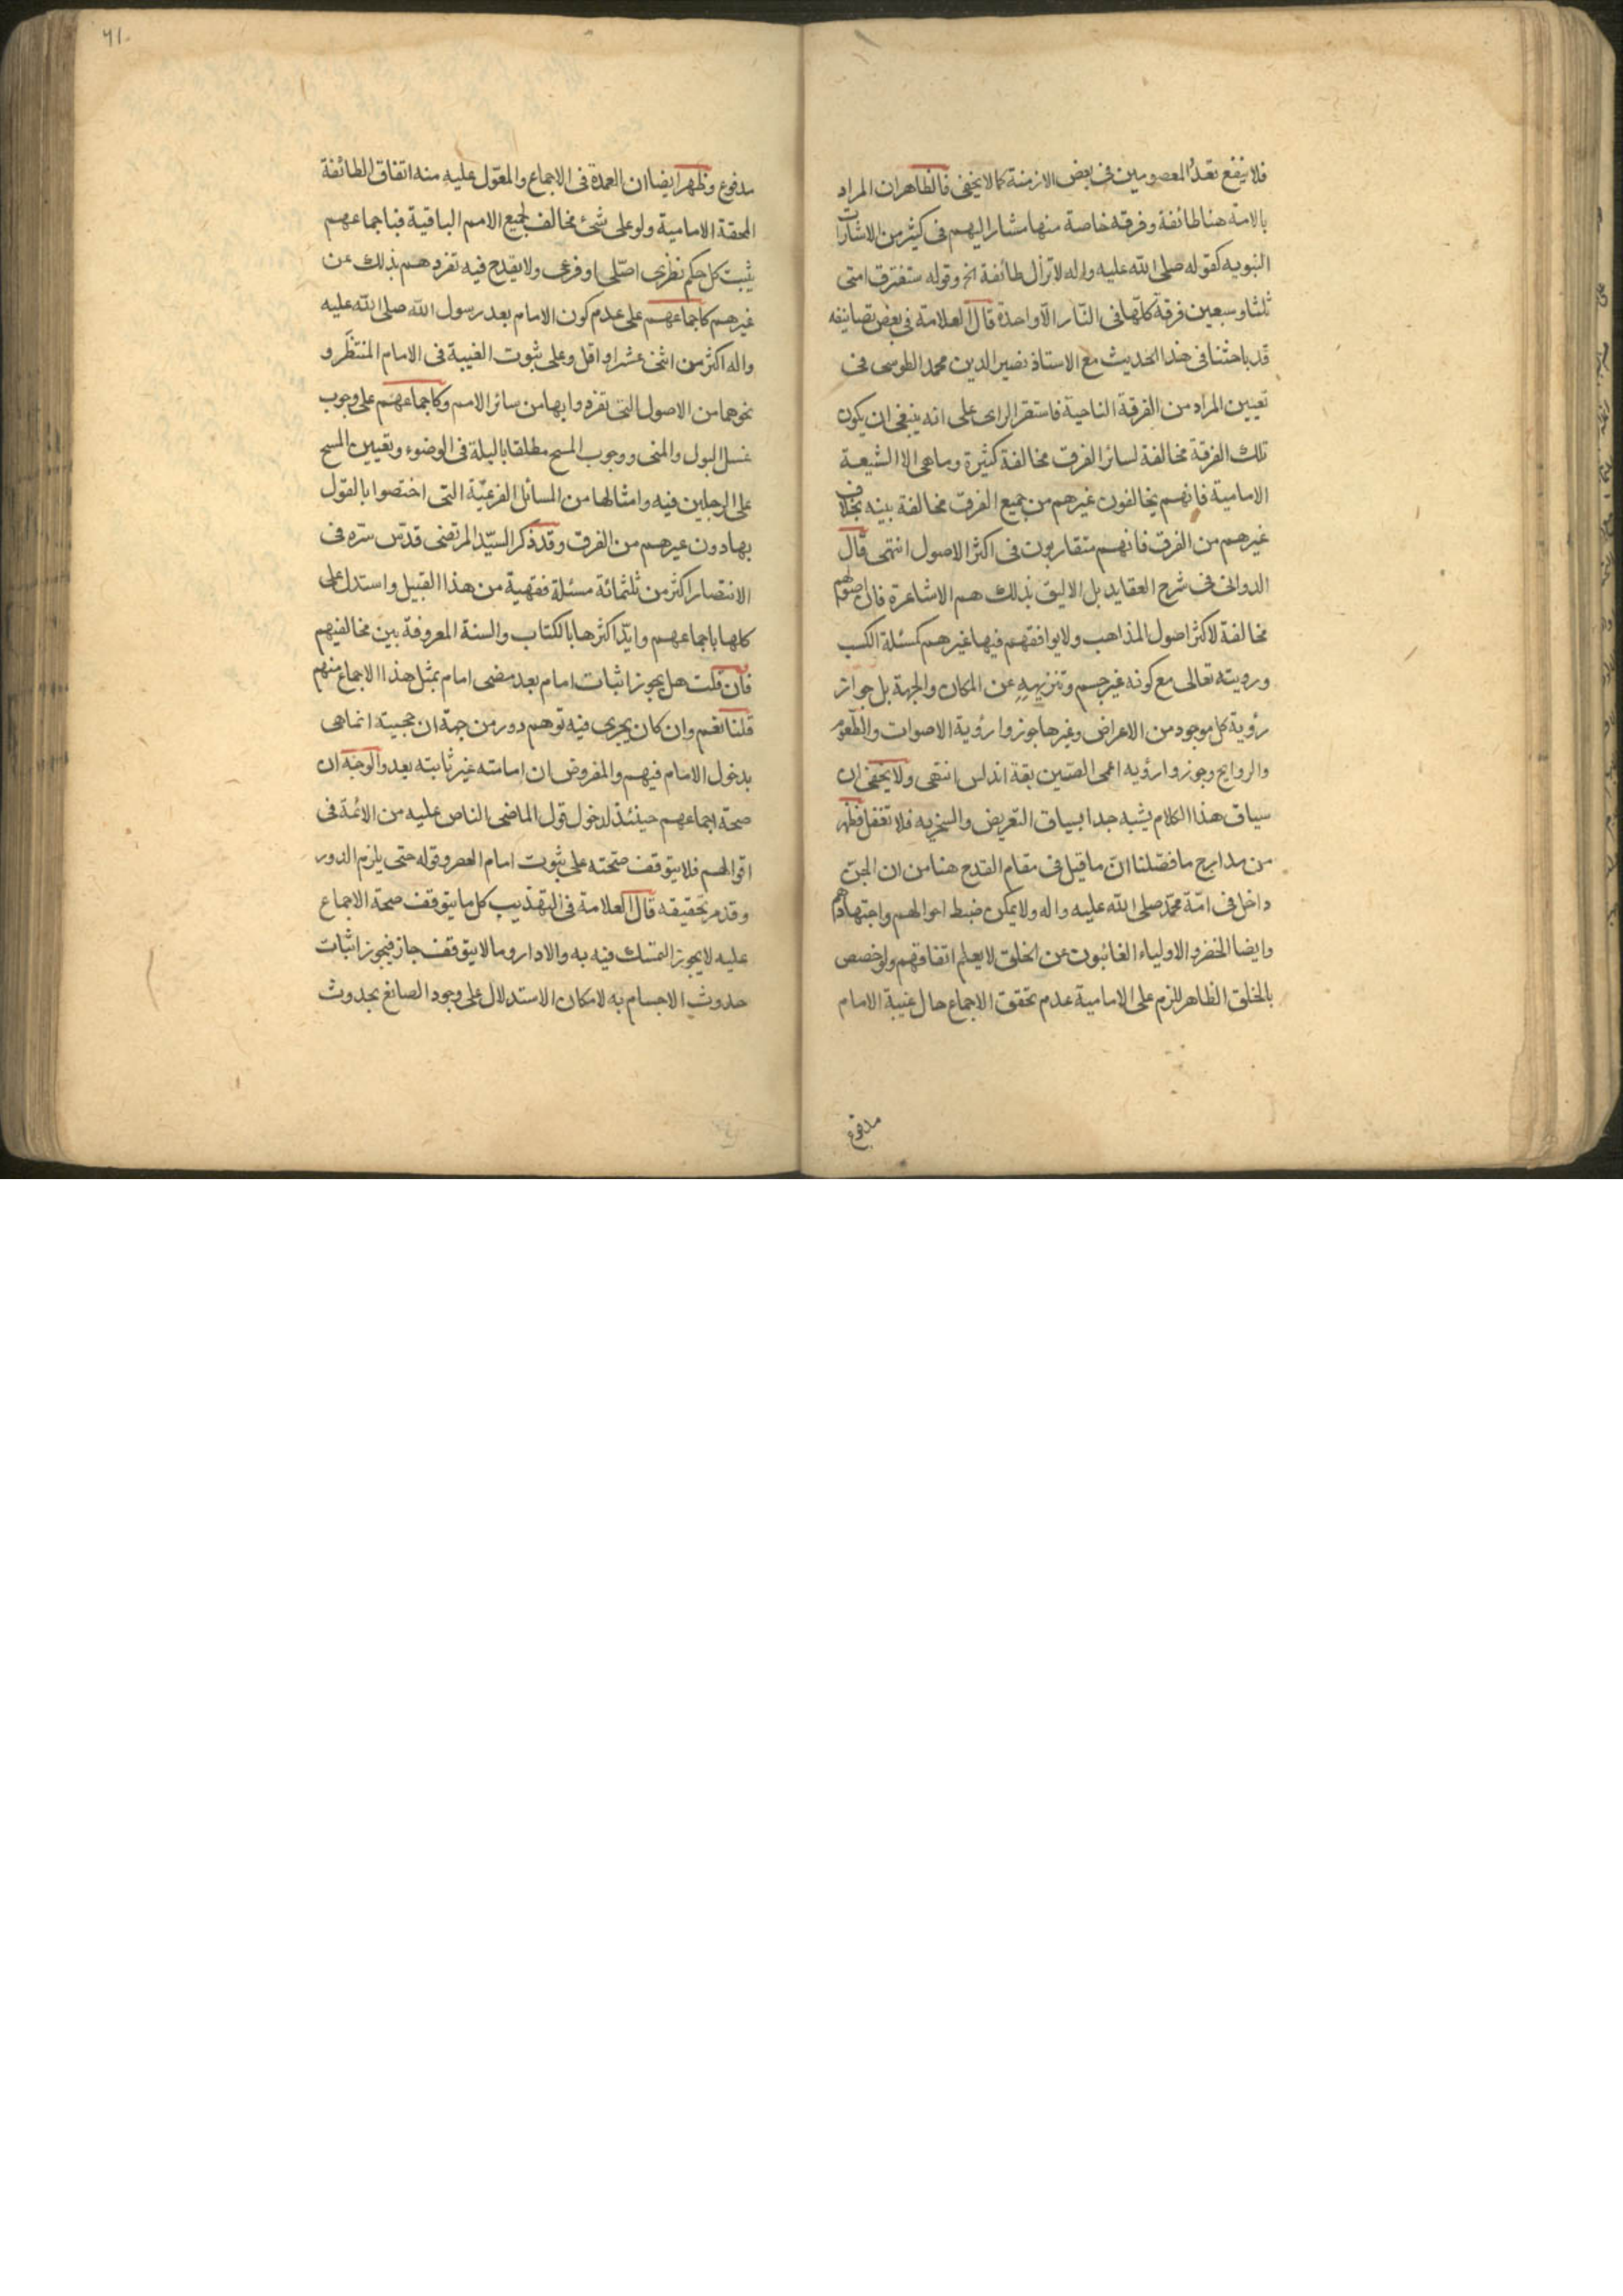 فلا ينفع تعدد المعصومين فى بعض الازمنة كما لا يخفى فالظاهر ان المراد
بالامة هنا طائفة وفرقه خاصة منها مشارا اليهم فى كثير من الاشارات
النبويه كقوله صلى الله عليه واله لا تزال طائفة الخ وقوله ستفترق امتى
ثلثا وسبعين فرقة كلها فى النار الا واحدة قال العلامة فى بعض تصانيفه
قد باحثنا فى هذا الحديث مع الاستاذ نصير الدين محمد الطوسى فى
تعيين المراد من الفرقة الناجية فاستقر الراى على انه ينبغى ان يكون
تلك الفرقة مخالفة لسائر الفرق مخالفة كثيرة وما هى الا الشيعة
الامامية فانهم يخالفون غيرهم من جميع الفرق مخالفة بينه بخلاف
غيرهم من الفرق فانهم متقاربون فى اكثر الاصول انتهى قال
الدوانى فى شرح العقايد بل الاليق بذلك هم الاشاعرة فان اصولهم
مخالفة لاكثر اصول المذاهب ولا يوافقهم فيها غيرهم كمسئلة الكسب
ورويته تعالى مع كونه غير جسم وتنزيهه عن المكان والجهة بل جواز
رؤية كل موجود من الاعراض وغيرها جوزوا رؤية الاصوات والطعوم
والروايح وجوزوا رؤيه اعمى الصين بقة اندلس انتهى ولا يخفى ان
سياق هذا الكلام يشبه جدا بسياق التعريض والسخريه فلا تغفل فظهر
من مدارج ما فصلنا ان ما قيل فى مقام القدح هنا من ان الجن
داخل فى امة محمد صلى الله عليه واله ولا يمكن ضبط احوالهم واجتهادهم
وايضا الخضر والاولياء الغائبون عن الخلق لا يعلم اتفاقهم ولو خصص
بالخلق الظاهر للزم على الامامية عدم تحقق الاجماع حال غيبة الامام
مدفوع
٦١٠
مدفوع وظهر ايضا ان العمدة فى الاجماع والمعول عليه منه اتفاق الطائفة
المحقة الامامية ولو على شئ مخالف لجميع الامم الباقية فباجماعهم
يثبت كل حكم نظرى اصلى او فرعى ولا يقدح فيه تفردهم بذلك عن
غيرهم كاجماعهم على عدم كون الامام بعد رسول الله صلى الله عليه
واله اكثر من اثنى عشر او اقل وعلى ثبوت الغيبة فى الامام المنتظر و
نحوهما من الاصول التى تفردوا بها من سائر الامم وكاجماعهم على وجوب
غسل البول والمنى ووجوب المسح مطلقا بالبلة فى الوضوء وتعيين المسح
على الرجلين فيه وامثالها من المسائل الفرعية التى اختصوا بالقول
بها دون غيرهم من الفرق وقد ذكر السيد المرتضى قدس سره فى
الانتصار اكثر من ثلثمائة مسئلة فقهية من هذا القبيل واستدل على
كلها باجماعهم وايد اكثرها بالكتاب والسنة المعروفة بين مخالفيهم
فان قلت هل يجوز اثبات امام بعد مضى امام بمثل هذا الاجماع منهم
قلنا نعم وان كان يجرى فيه توهم دور من جهة ان حجيته انما هى
بدخول الامام فيهم والمفروض ان امامته غير ثابته بعد والوجه ان
صحة اجماعهم حينئذ لدخول قول الماضى الناص عليه من الائمة فى
اقوالهم فلا يتوقف صحته على ثبوت امام العصر وقوله حتى يلزم الدور
وقد مر تحقيقه قال العلامة فى التهذيب كل ما يتوقف صحة الاجماع
عليه لا يجوز التمسك فيه به والا دار وما لا يتوقف جاز فيجوز اثبات
حدوث الاجسام به لامكان الاستدلال على وجود الصانع بحدوث